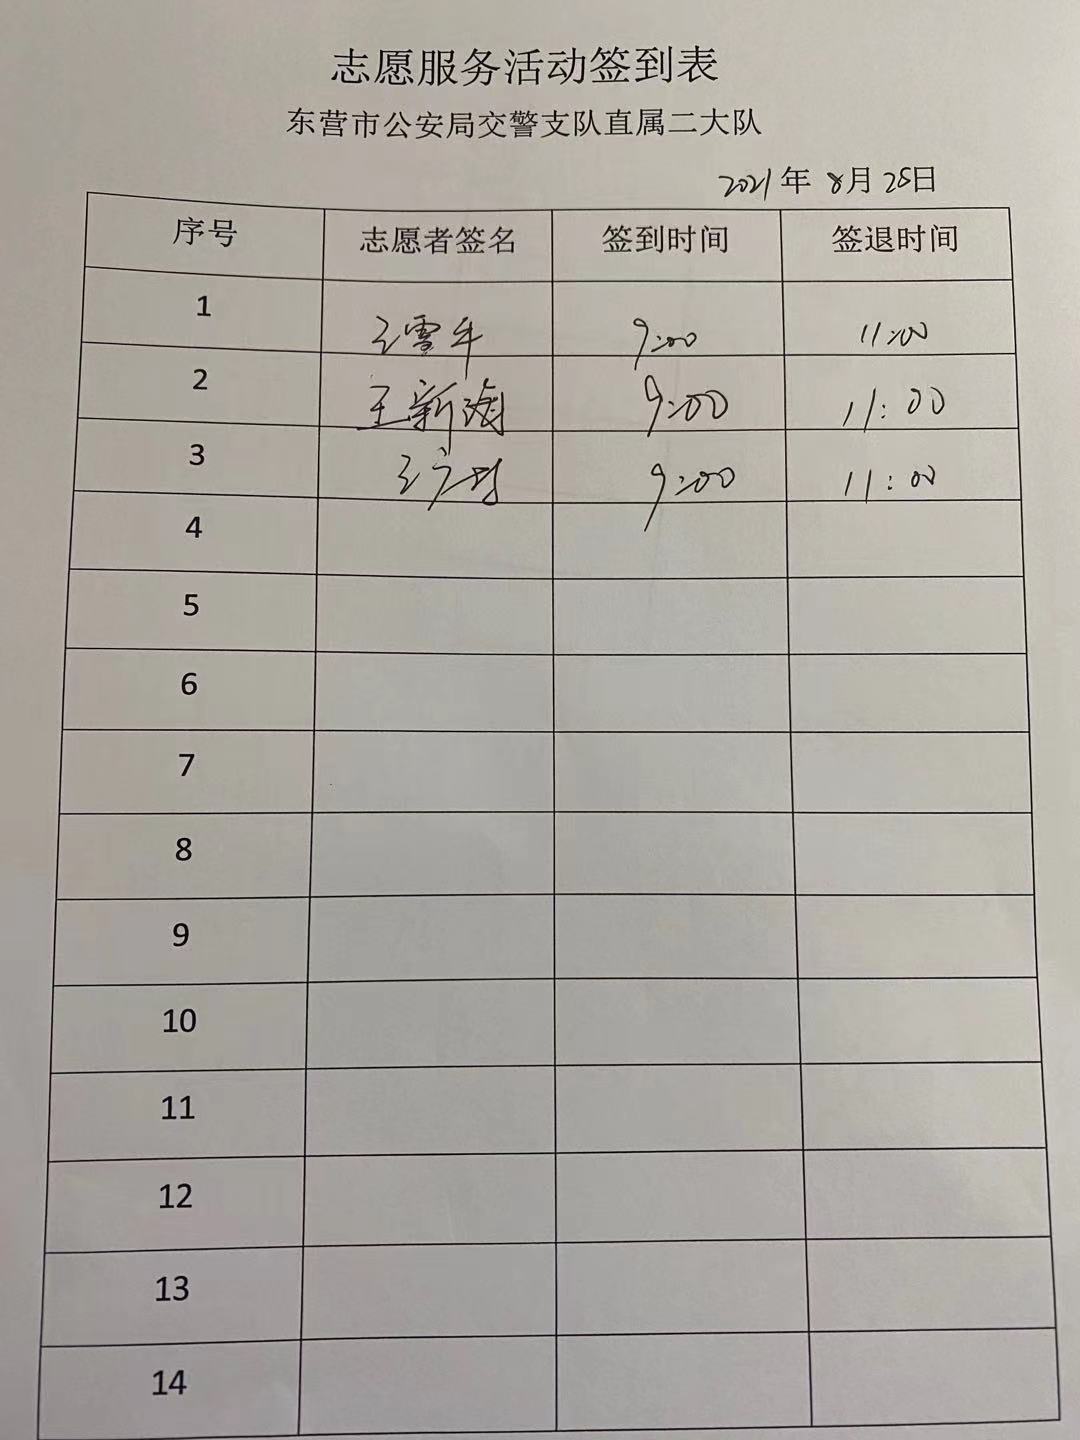 志愿服务活动签到表
东营市公安局交警支队直属二大队
2021年 8月 28日
序号 志愿者签名 签到时间 签退时间
1 王雪年 9:00 11:00
2 王新海 9:00 11:00
3 王 9:00 11:00
4
5
6
7
8
9
10
11
12
13
14